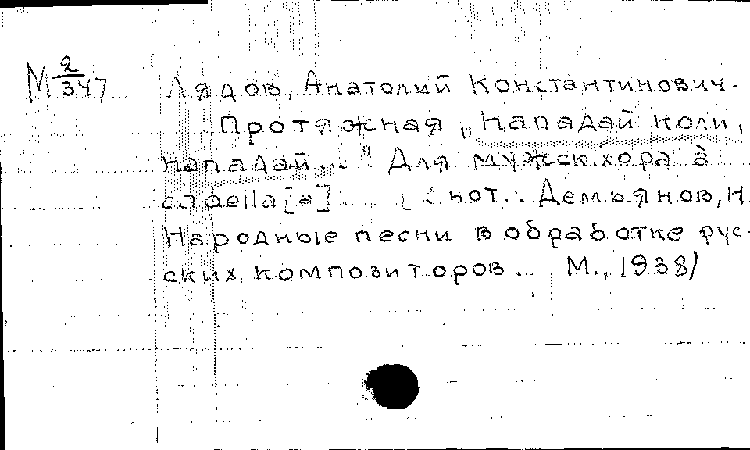 М 2/347 Лядов, Анатолий Константинович.
Протяжная „Нападай коли,
нападай..." Для мужск. хора à
capella [*] [с нот.. Демьянов, Н.
Народные песни в обработке рус-
ских композиторов.. М., 1938/